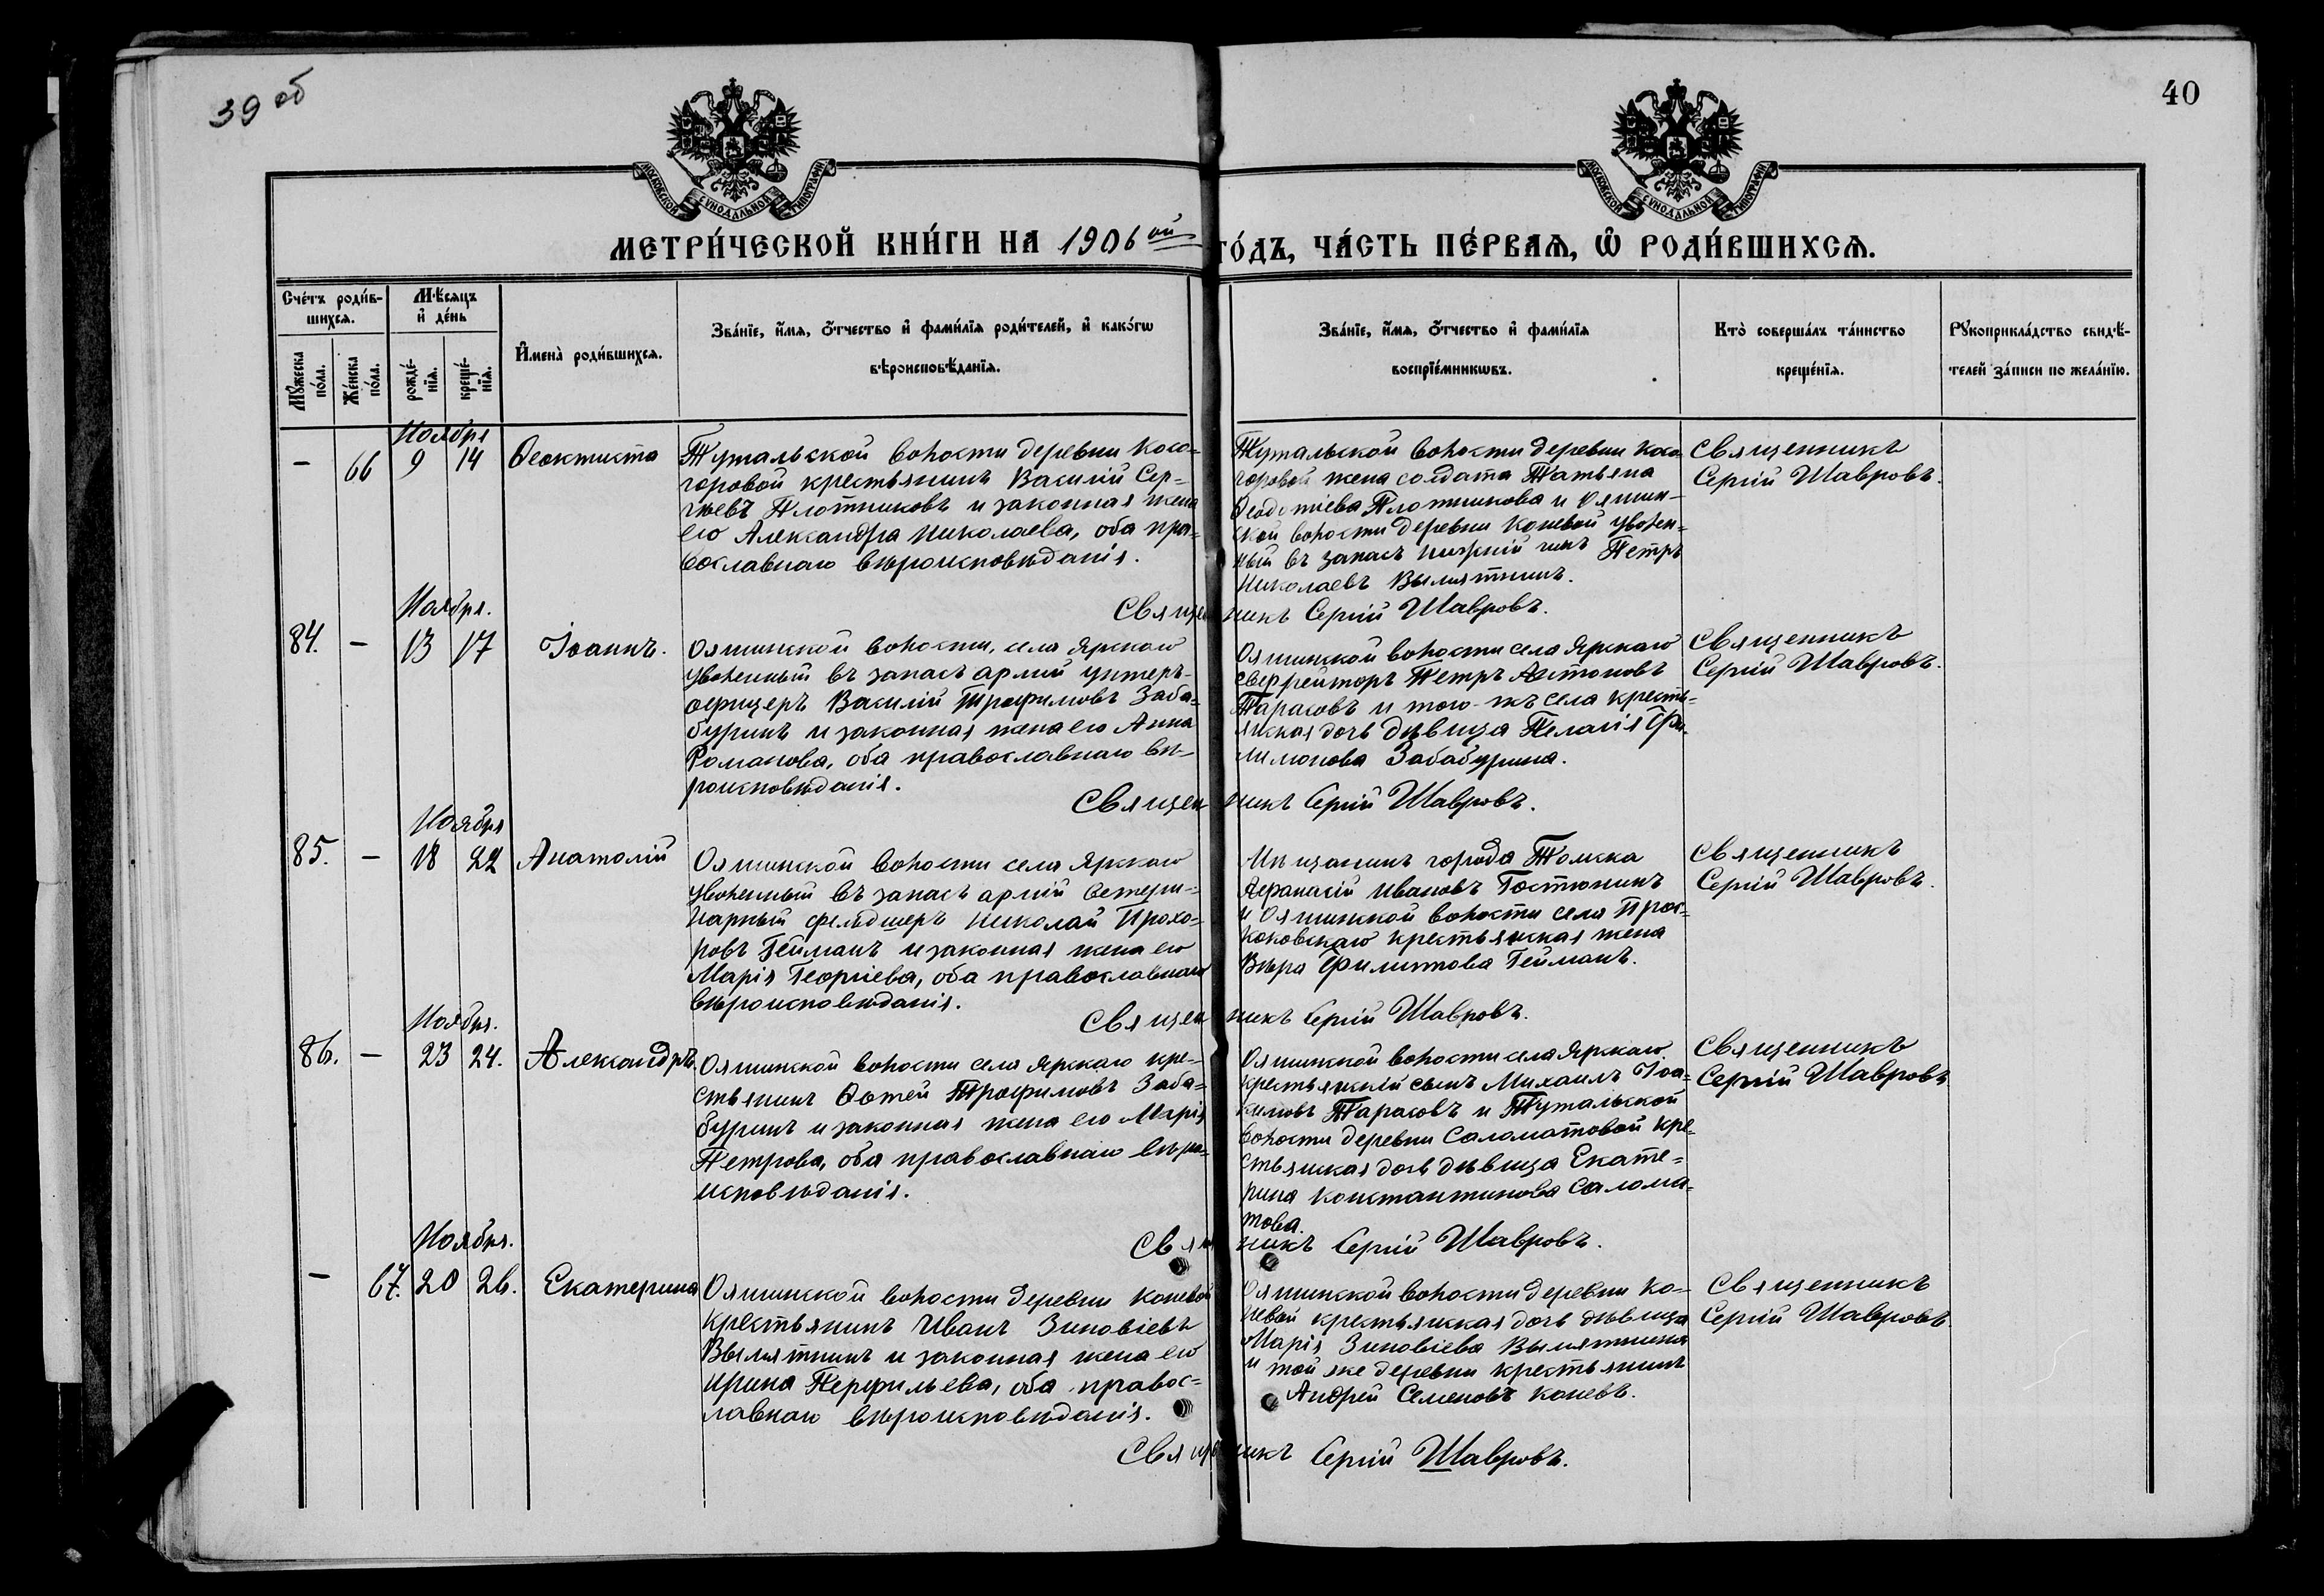 39 об
40
МОСКОВСКОЙ СѴНОДАЛЬНОЙ ТИПОГРАФІИ
МОСКОВСКОЙ СѴНОДАЛЬНОЙ ТИПОГРАФІИ
МЕТРИ́ЧЕСКОЙ КНИ́ГИ НА 1906ой ГО́ДЪ, ЧА́СТЬ ПЕ́РВАѦ, Ѡ РОДИ́ВШИХСѦ.
Сче́тъ роди́в-
шихсѧ.
Мꙋжеска по́ла.
Же́нска по́ла.
Мѣ́сѧцъ
и҆ де́нь
рожде́-
нїѧ.
креще́-
нїѧ.
И҆мена̀ роди́вшихсѧ.
Зва́нїе, и҆́мѧ, о҆́тчество и҆ фами́лїѧ роди́телей, и҆ како́гѡ
вѣроисповѣ́данїѧ.
Зва́нїе, и҆́мѧ, о҆́тчество и҆ фами́лїѧ
воспрїе́мникѡвъ.
Кто̀ соверша́лъ та́инство
креще́нїѧ.
Рꙋкоприкла́дство свидѣ́-
телей за́писи по жела́нїю.
Ноября
— 66 9 14 Ѳеоктиста
Тутальской волости деревни Косо-
горовой крестьянинъ Василій Сер-
гѣевъ Плотниковъ и законная жена
его Александра Николаева, оба пра-
вославнаго вѣроисповѣданія.
Тутальской волости деревни Косо-
горовой жена солдата Татьяна
Ѳеодотіева Плотникова и Ояшин-
ской волости деревни Коневой уволен-
ный въ запасъ нижній чинъ Петръ
Николаевъ Вылятнинъ.
Священникъ
Сергій Шавровъ.
Священникъ Сергій Шавровъ.
Ноября.
84. — 13 17 Іоаннъ.
Ояшинской волости, села Ярскаго
уволенный въ запасъ арміи унтеръ-
офицеръ Василій Трофимовъ Заба-
буринъ и законная жена его Анна
Романова, оба православнаго вѣ-
роисповѣданія.
Ояшинской волости села Ярскаго
ефрейторъ Петръ Антоновъ
Тарасовъ и того-жъ села кресть-
янская дочь дѣвица Пелагія Фи-
лимонова Забабурина.
Священникъ
Сергій Шавровъ.
Священникъ Сергій Шавровъ.
Ноября
85. — 18 22 Анатолій
Ояшинской волости села Ярскаго
уволенный въ запасъ арміи ветери-
нарный фельдшеръ Николай Прохо-
ровъ Гейманъ и законная жена его
Марія Георгіева, оба православнаго
вѣроисповѣданія.
Мѣщанинъ города Томска
Афанасій Ивановъ Гостюнинъ
и Ояшинской волости села Прос-
коковскаго крестьянская жена
Вѣра Филиппова Гейманъ.
Священникъ
Сергій Шавровъ.
Священникъ Сергій Шавровъ.
Ноября.
86. — 23 24. Александръ.
Ояшинской волости села Ярскаго кре-
стьянинъ Фотей Трофимовъ Заба-
буринъ и законная жена его Марія
Петрова, оба православнаго вѣро-
исповѣданія.
Ояшинской волости села Ярскаго
крестьянскій сынъ Михаилъ Іоа-
кимовъ Тарасовъ и Тутальской
волости деревни Саломатовой кре-
стьянская дочь дѣвица Екате-
рина Константинова Салома-
това.
Священникъ
Сергій Шавровъ
Священникъ Сергій Шавровъ.
Ноября.
— 67. 20 26. Екатерина
Ояшинской волости деревни Коневой
крестьянинъ Иванъ Зиновіевъ
Вылятнинъ и законная жена его
Ирина Перфильева, оба правос-
лавнаго вѣроисповѣданія.
Ояшинской волости деревни Ко-
невой крестьянская дочь дѣвица
Марія Зиновіева Вылятнина
и той же деревни крестьянинъ
Андрей Семеновъ Коневъ.
Священникъ
Сергій Шавровъ.
Священникъ Сергій Шавровъ.